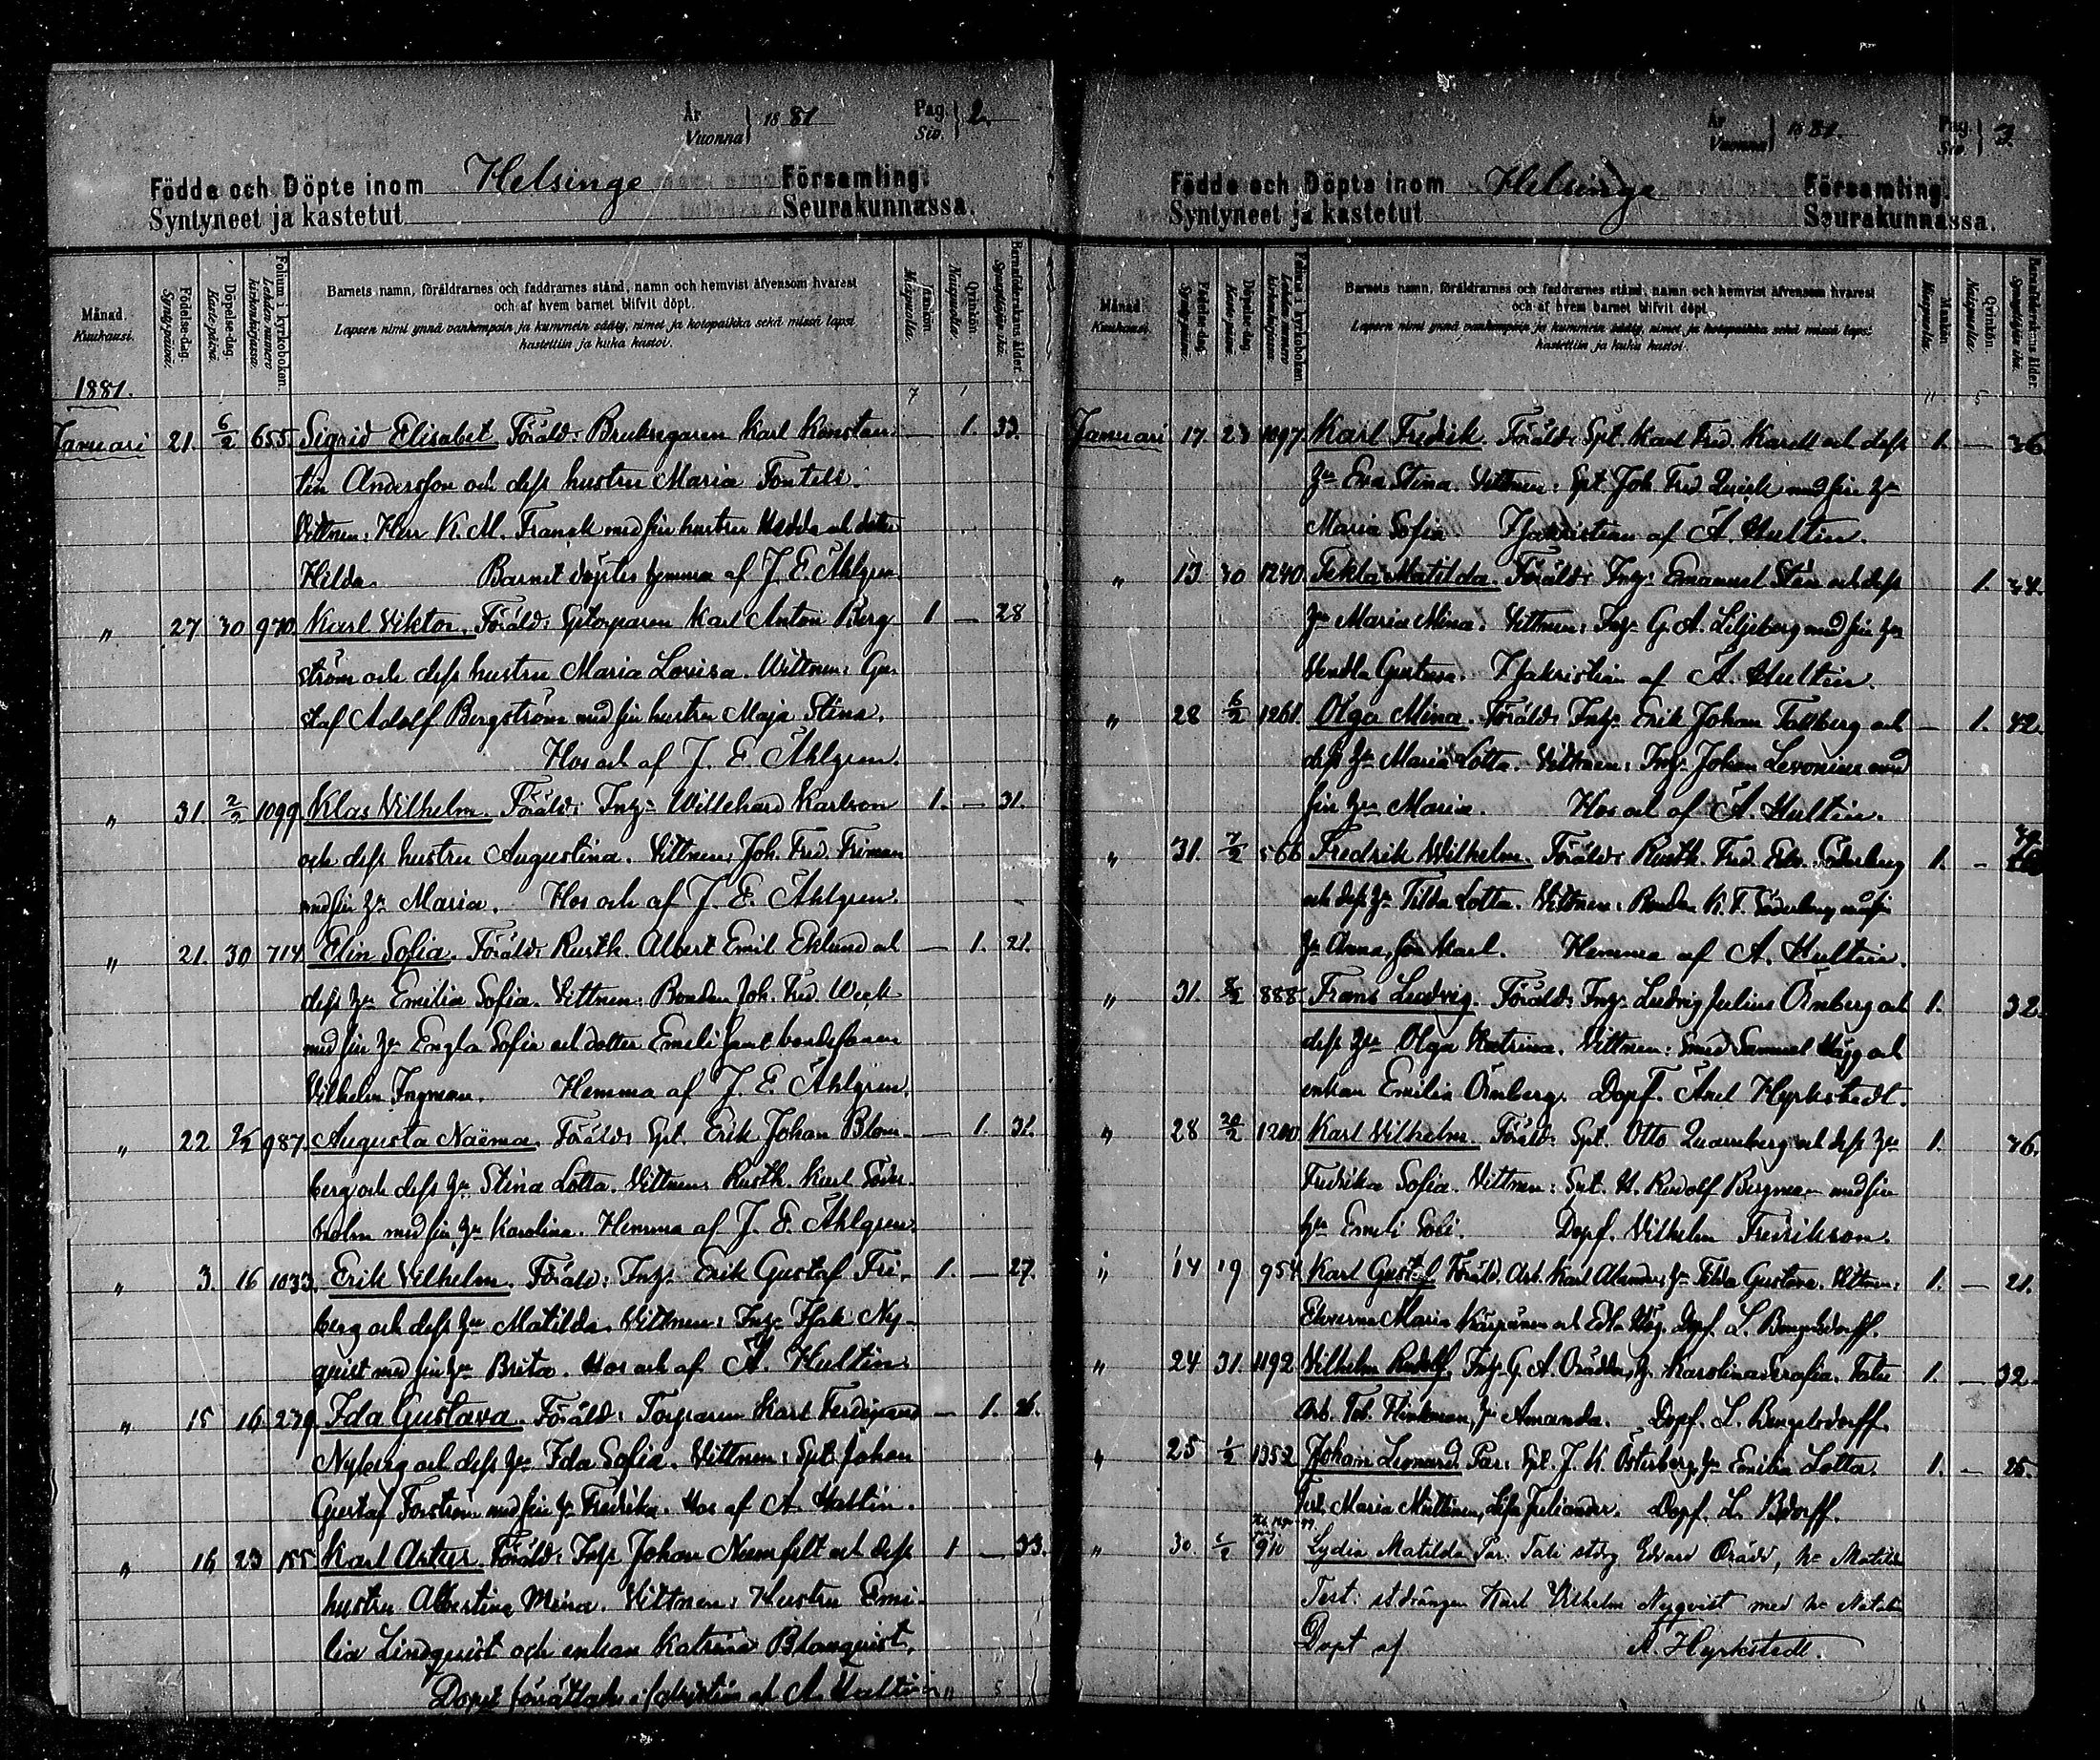 År
Vuonna } 1881 Pag. Siv. } 2.
Födde och Döpte inom Helsinge Församling.
Syntyneet ja kastetut Seurakunnassa.
Månad. Kuukausi.
Födelse-dag. Synty-päivä.
Döpelse-dag. Kaste-päivä.
Folium i kyrkoboken. Lehden numero kirkonkirjassa.
Barnets namn, föräldrarnes och faddrarnes stånd, namn och hemvist äfvensom hvarest
och af hvem barnet blifvit döpt.
Lapsen nimi ynnä vanhempain ja kummein sääty, nimet ja kotopaikka sekä missä lapsi
kastettiin ja kuka kastoi.
Mankön. Miespuolia.
Qvinkön. Naispuolia.
Barnaföderskans ålder. Synnyttäjän ikä.
1881. 7 1
Januari 21. 6/2 655. Sigrid Elisabet Föräld: Bruksegaren Karl Konstan- — 1. 33.
tin Andersson och dess hustru Maria Fontell.
Vittnen: Herr K. M. Fransk med sin hustru Hedda och dotter
Hilda. Barnet döptes hemma af J. E. Åhlgren.
" 27 30 970. Karl Viktor. Föräld: Sptorparen Karl Anton Berg- 1 — 28
ström och dess hustru Maria Lovisa. Vittnen: Gu-
staf Adolf Bergström med sin hustru Maja Stina.
Hos och af J. E. Åhlgren.
" 31. 2/2 1099 Klas Vilhelm. Föräld: Inhys Willehard Karlson 1. — 31.
och dess hustru Augustina. Vittnen: Joh. Fred. Friman
med sin hu Maria. Hos och af J. E. Åhlgren.
" 21. 30 714 Elin Sofia. Föräld: Rusth. Albert Emil Eklund och — 1. 21.
dess hu Emilia Sofia. Vittnen: Bonden Joh. Fred. Weck
med sin hu Engla Sofia och dotter Emeli samt bondesonen
Vilhelm Ingman. Hemma af J. E. Åhlgren.
" 22 2/2 987. Augusta Naëma. Föräld: Spt. Erik Johan Blom- — 1. 31.
berg och dess hu Stina Lotta. Vittnen: Rusth. Karl Söder-
holm med sin hu Karolina. Hemma af J. E. Åhlgren.
" 3. 16 1033. Erik Vilhelm. Föräld: Inhys Erik Gustaf Fri- 1. — 27.
berg och dess hu Matilda. Vittnen: Inhys Isak Ny-
quist med sin hu Brita. Hos och af A. Hultin.
" 15 16 279. Ida Gustava. Föräld: Torparen Karl Ferdinand — 1. 26.
Nyberg och dess hu Ida Sofia. Vittnen: Spt. Johan
Gustaf Forström med sin hu Fredrika. Hos af A. Hultin.
" 16 23 155. Karl Artur. Föräld: Inhys Johan Numfelt och dess 1 — 33.
hustru Albertina Mina. Vittnen: Hustru Emi-
lia Lindquist och enkan Katrina Blomquist.
Dopet förrättades i sakristian af A. Hultin
År
Vuonna } 1881. Pag. Siv. } 3.
Födde och Döpte inom Helsinge Församling.
Syntyneet ja kastetut Seurakunnassa.
Månad. Kuukausi.
Födelse-dag. Synty-päivä.
Döpelse-dag. Kaste-päivä.
Folium i kyrkoboken. Lehden numero kirkonkirjassa.
Barnets namn, föräldrarnes och faddrarnes stånd, namn och hemvist äfvensom hvarest
och af hvem barnet blifvit döpt.
Lapsen nimi ynnä vanhempain ja kummein sääty, nimet ja kotopaikka sekä missä lapsi
kastettiin ja kuka kastoi.
Mankön. Miespuolia.
Qvinkön. Naispuolia.
Barnaföderskans ålder. Synnyttäjän ikä.
11 5
Januari 17. 23 1097 Karl Fredrik. Föräld: Spt. Karl Fred. Kardt och dess 1. — 36
hu Eva Stina. Vittnen: Spt. Joh. Fred Quick med sin hu
Maria Sofia. I sakristian af A. Hultin.
" 13 30 1240. Tekla Matilda. Föräld: Inhys Emanuel Stén och dess 1.
hu Maria Mina. Vittnen: Inhys G. A. Liljeberg med sin hu
Vendla Gustava. I sakristian af A. Hultin.
" 28 6/2 1261. Olga Mina. Föräld: Inhys Erik Johan Tallberg och — 1. 42.
dess hu Maria Lotta. Vittnen: Inhys Johan Levonius med
sin hu Maria. Hos och af A. Hultin.
" 31. 7/2 566 Fredrik Wilhelm. Föräld: Rusth. Fred. Edv. Söderberg 1. —
och dess hu Tilda Lotta. Vittnen: Bonden K. F. Söderberg med sin
hu Anna, son Karl. Hemma af A. Hultin.
" 31. 888 Frans Ludvig. Föräld: Inhys Ludvig Julius Örnberg och 1. 32.
dess hu Olga Katrina. Vittnen: Smed Samuel Hägg och
enkan Emilia Örnberg. Dopf. Axel Hyrkstedt.
" 28 20/2 1200 Karl Vilhelm. Föräld: Spt. Otto Quarnberg och dess hu 1. 36.
Fredrika Sofia. Vittnen: Spt. K. Rudolf Bergman med sin
hu Emeli Sofi. Dopf. Vilhelm Fredrikson.
" 14 19 954 Karl Gustaf Föräld. Arb. Karl Alander, hu Tilda Gustava. Vittnen: 1. — 21.
Maria och Edla Dopf. L. Bengelsdorff.
" 24 31. 1192 Vilhelm Rudolf. Inhys G. A. Orädd, hu Karolina Serafia. Test: 1. — 32.
Arb. Tob. Flinkman, hu Amanda. Dopf. L. Bengelsdorff.
" 25 1/2 1352 Johan Leonard. Par: Spt. J. K. Österberg, hu Emilia Lotta. 1. — 25.
Test. Maria Lisa Juliander. Dopf. L. Bdorff.
" 30. 1/2 910 Lydia Matilda Par. Tali stdrg Edvard Orädd, hu Matilda
Test: stdrängen Karl Vilhelm Nyqvist med hu Natalia
Döpt af A. Hyrkstedt.